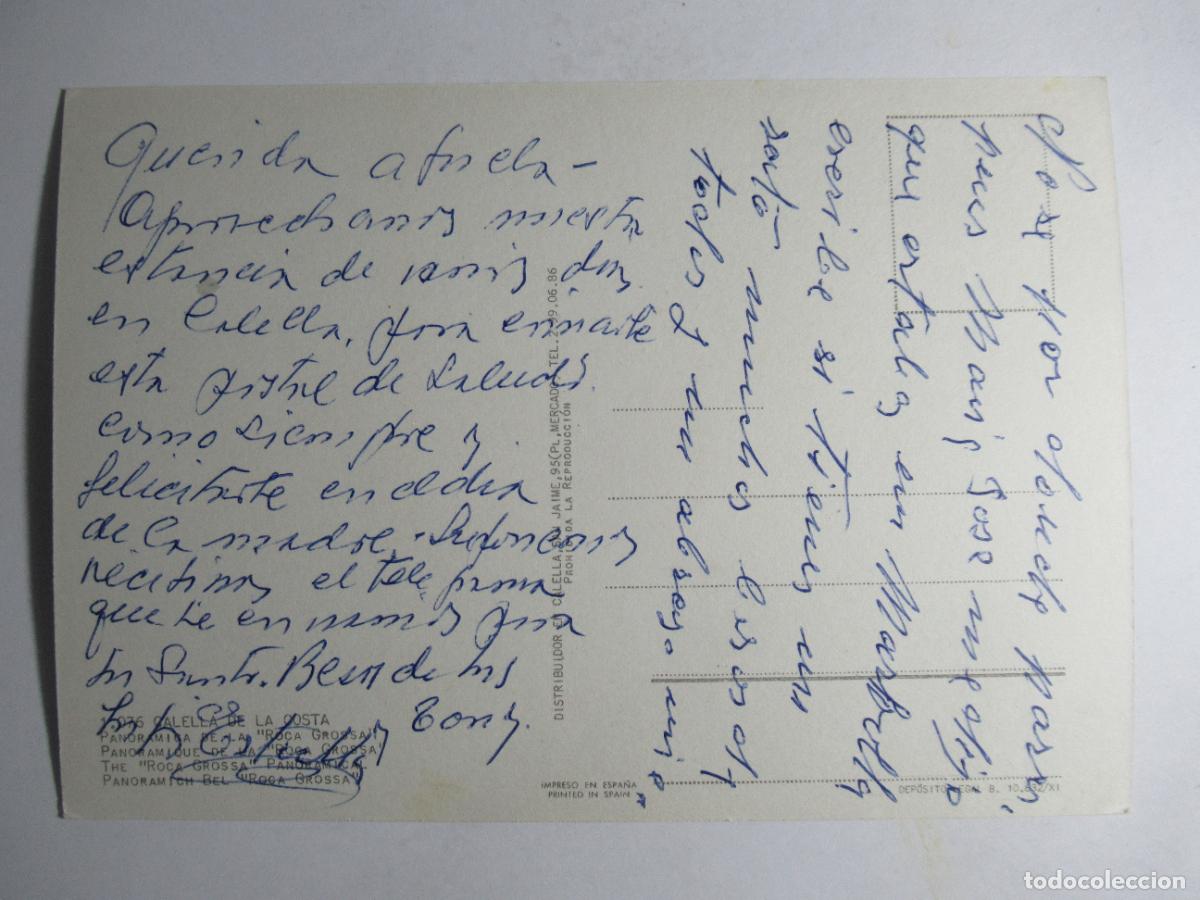 Querida abuela -
Aprovechamos nuestra
estancia de unos días
en Calella, para enviarte
esta postal de saludos.
como siempre y
felicitarte en el día
de la madre. Suponemos
recibiras el telegrama
que te enviamos para
tu Santo. Besos de tus
hijos Tony.
No se por donde para
pues Mari Jose me dijo
que estabas en Marbella
escribe si tienes un
rato muchos besos de
todos y un abrazo mio
17076 CALELLA DE LA COSTA
PANORAMICA DE LA "ROCA GROSSA"
PANORAMIQUE DE LA "ROCA GROSSA"
THE "ROCA GROSSA" PANORAMICAL
PANORAMICH BEL "ROCA GROSSA"
DISTRIBUIDOR EN CALELLA, SAN JAIME, 95 (PL, MERCADO) TEL. 299.06.86
PROHIBIDA LA REPRODUCCIÓN
IMPRESO EN ESPAÑA
PRINTED IN SPAIN
DEPÓSITO LEGAL B. 10.832/XI
todocoleccion